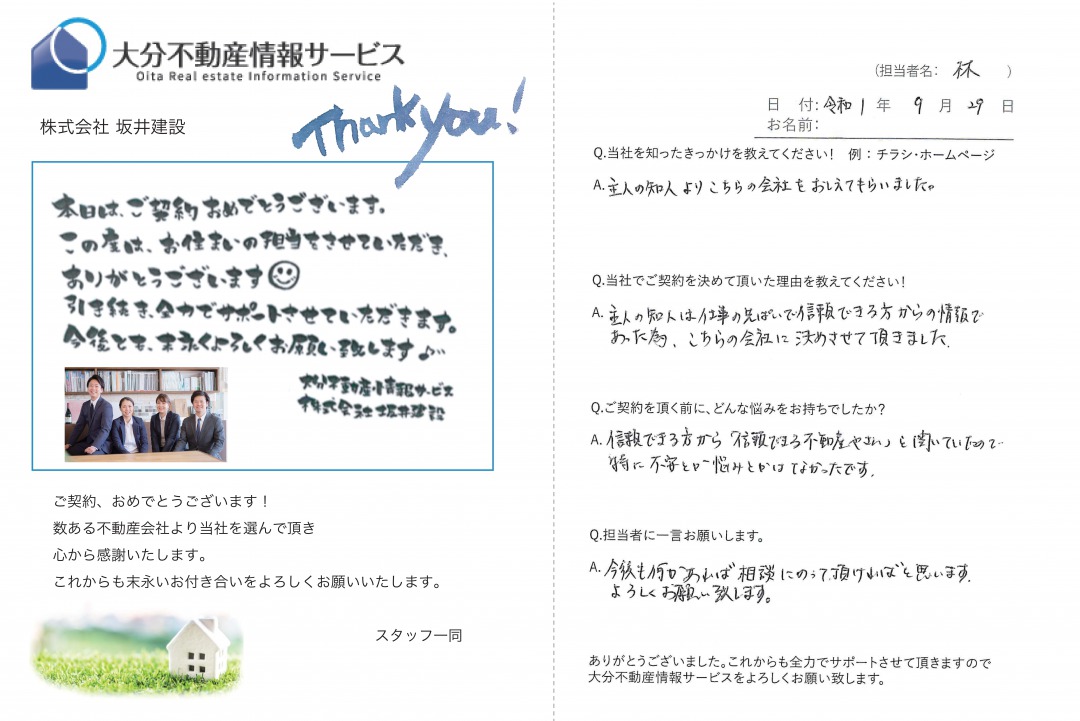 大分不動産情報サービス
Oita Real estate Information Service
株式会社 坂井建設
Thank you!
本日は、ご契約おめでとうございます。
この度は、お住まいの担当をさせていただき、
ありがとうございます
引き続き、全力でサポートさせていただきます。
今後とも、末永くよろしくお願い致します♪
大分不動産情報サービス
株式会社坂井建設
ご契約、おめでとうございます！
数ある不動産会社より当社を選んで頂き
心から感謝いたします。
これからも末永いお付き合いをよろしくお願いいたします。
スタッフ一同
（担当者名： 林 ）
日 付：令和 1 年 9 月 29 日
お名前：
Q.当社を知ったきっかけを教えてください！ 例：チラシ・ホームページ
A. 主人の知人よりこちらの会社をおしえてもらいました。
Q.当社でご契約を決めて頂いた理由を教えてください！
A. 主人の知人は仕事の先ぱいで信頼できる方からの情報で
あった為、こちらの会社に決めさせて頂きました。
Q.ご契約を頂く前に、どんな悩みをお持ちでしたか？
A. 信頼できる方から「信頼できる不動産やさん」と聞いていたので
特に不安とか悩みとかはなかったです。
Q.担当者に一言お願いします。
A. 今後も何かあれば相談にのって頂ければと思います。
よろしくお願い致します。
ありがとうございました。これからも全力でサポートさせて頂きますので
大分不動産情報サービスをよろしくお願い致します。